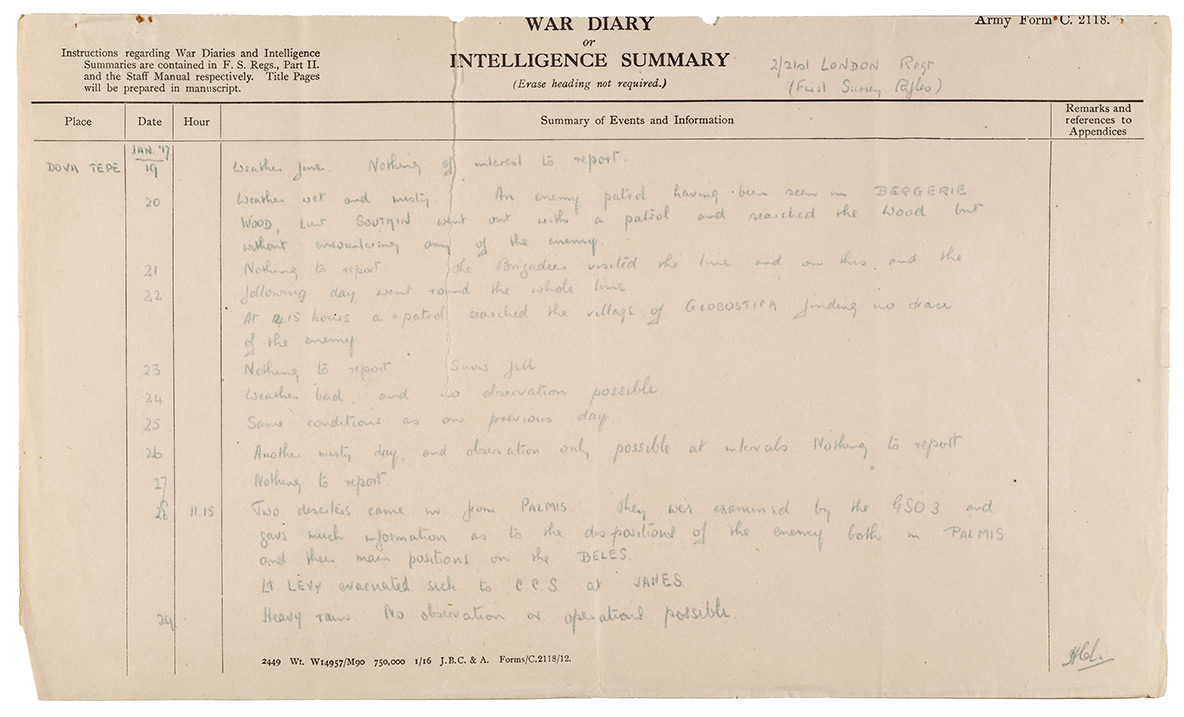 WAR DIARY
or
INTELLIGENCE SUMMARY
(Erase heading not required.)
Army Form C. 2118.
Instructions regarding War Diaries and Intelligence
Summaries are contained in F. S. Regs., Part II.
and the Staff Manual respectively. Title Pages
will be prepared in manuscript.
2/21st LONDON Regt
(First Surrey Rifles)
Place Date Hour Summary of Events and Information Remarks and
references to
Appendices
JAN. '17
DOVA TEPE 19 Weather fine. Nothing of interest to report.
20 Weather wet and misty. An enemy patrol having been seen in BERGERIE
WOOD, Lieut. SOUTHIN went out with a patrol and searched the Wood but
without encountering any of the enemy.
21 Nothing to report The Brigadier visited the line and on this and the
22 following day, went round the whole line.
At hours a patrol searched the village of GLOBOSTICA finding no trace
of the enemy
23 Nothing to report Snow fell
24 Weather bad, and no observation possible
25 Same conditions as on previous day
26 Another misty day, and observation only possible at intervals Nothing to report
27 Nothing to report.
28 11.15 Two deserters came in from PALMIS They were examined by the GSO3 and
gave much information as to the dispositions of the enemy both in PALMIS
and their main positions on the BELES.
Lt. LEVY evacuated sick to C.C.S. at JANES.
29 Heavy rain. No observation or operations possible.
2449 Wt. W14957/M90 750,000 1/16 J.B.C. & A. Forms/C.2118/12.